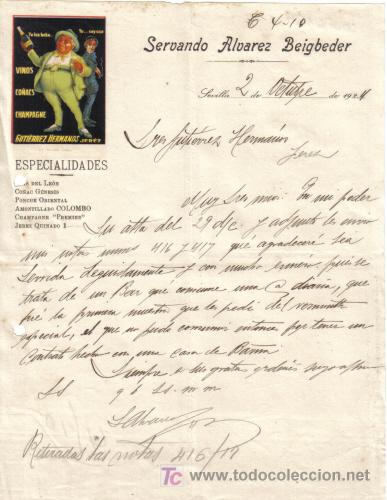 E 4-10
Yo las bebo.. Yo ... soy seco
VINOS
COÑACS
CHAMPAGNE
GUTIÉRREZ HERMANOS JEREZ
ESPECIALIDADES
DEL LEÓN
COÑAC GÉNESIS
PONCHE ORIENTAL
AMONTILLADO COLOMBO
CHAMPAGNE "PREMIER"
JEREZ QUINADO
Servando Alvarez Beigbeder
Sevilla 2 de Octubre de 192
Sres Gutierrez Hermanos
Jerez
Muy Sres mios: En mi poder
su atta del 29 d/c y adjunto les envio
mis notas nums 416 y 417 que agradeceré sea
servida y con mucho esmero, pues se
trata de un Bar que consume una @ diaria, que
fué la primera muestra que les pedi del
especial, el que no pudo consumir entonces por tener un
contrato hecho con una casa de
Siempre a sus gratas ordenes suyo
SS q b ss. m m
Retiradas las notas 416/17
TC www.todocoleccion.net